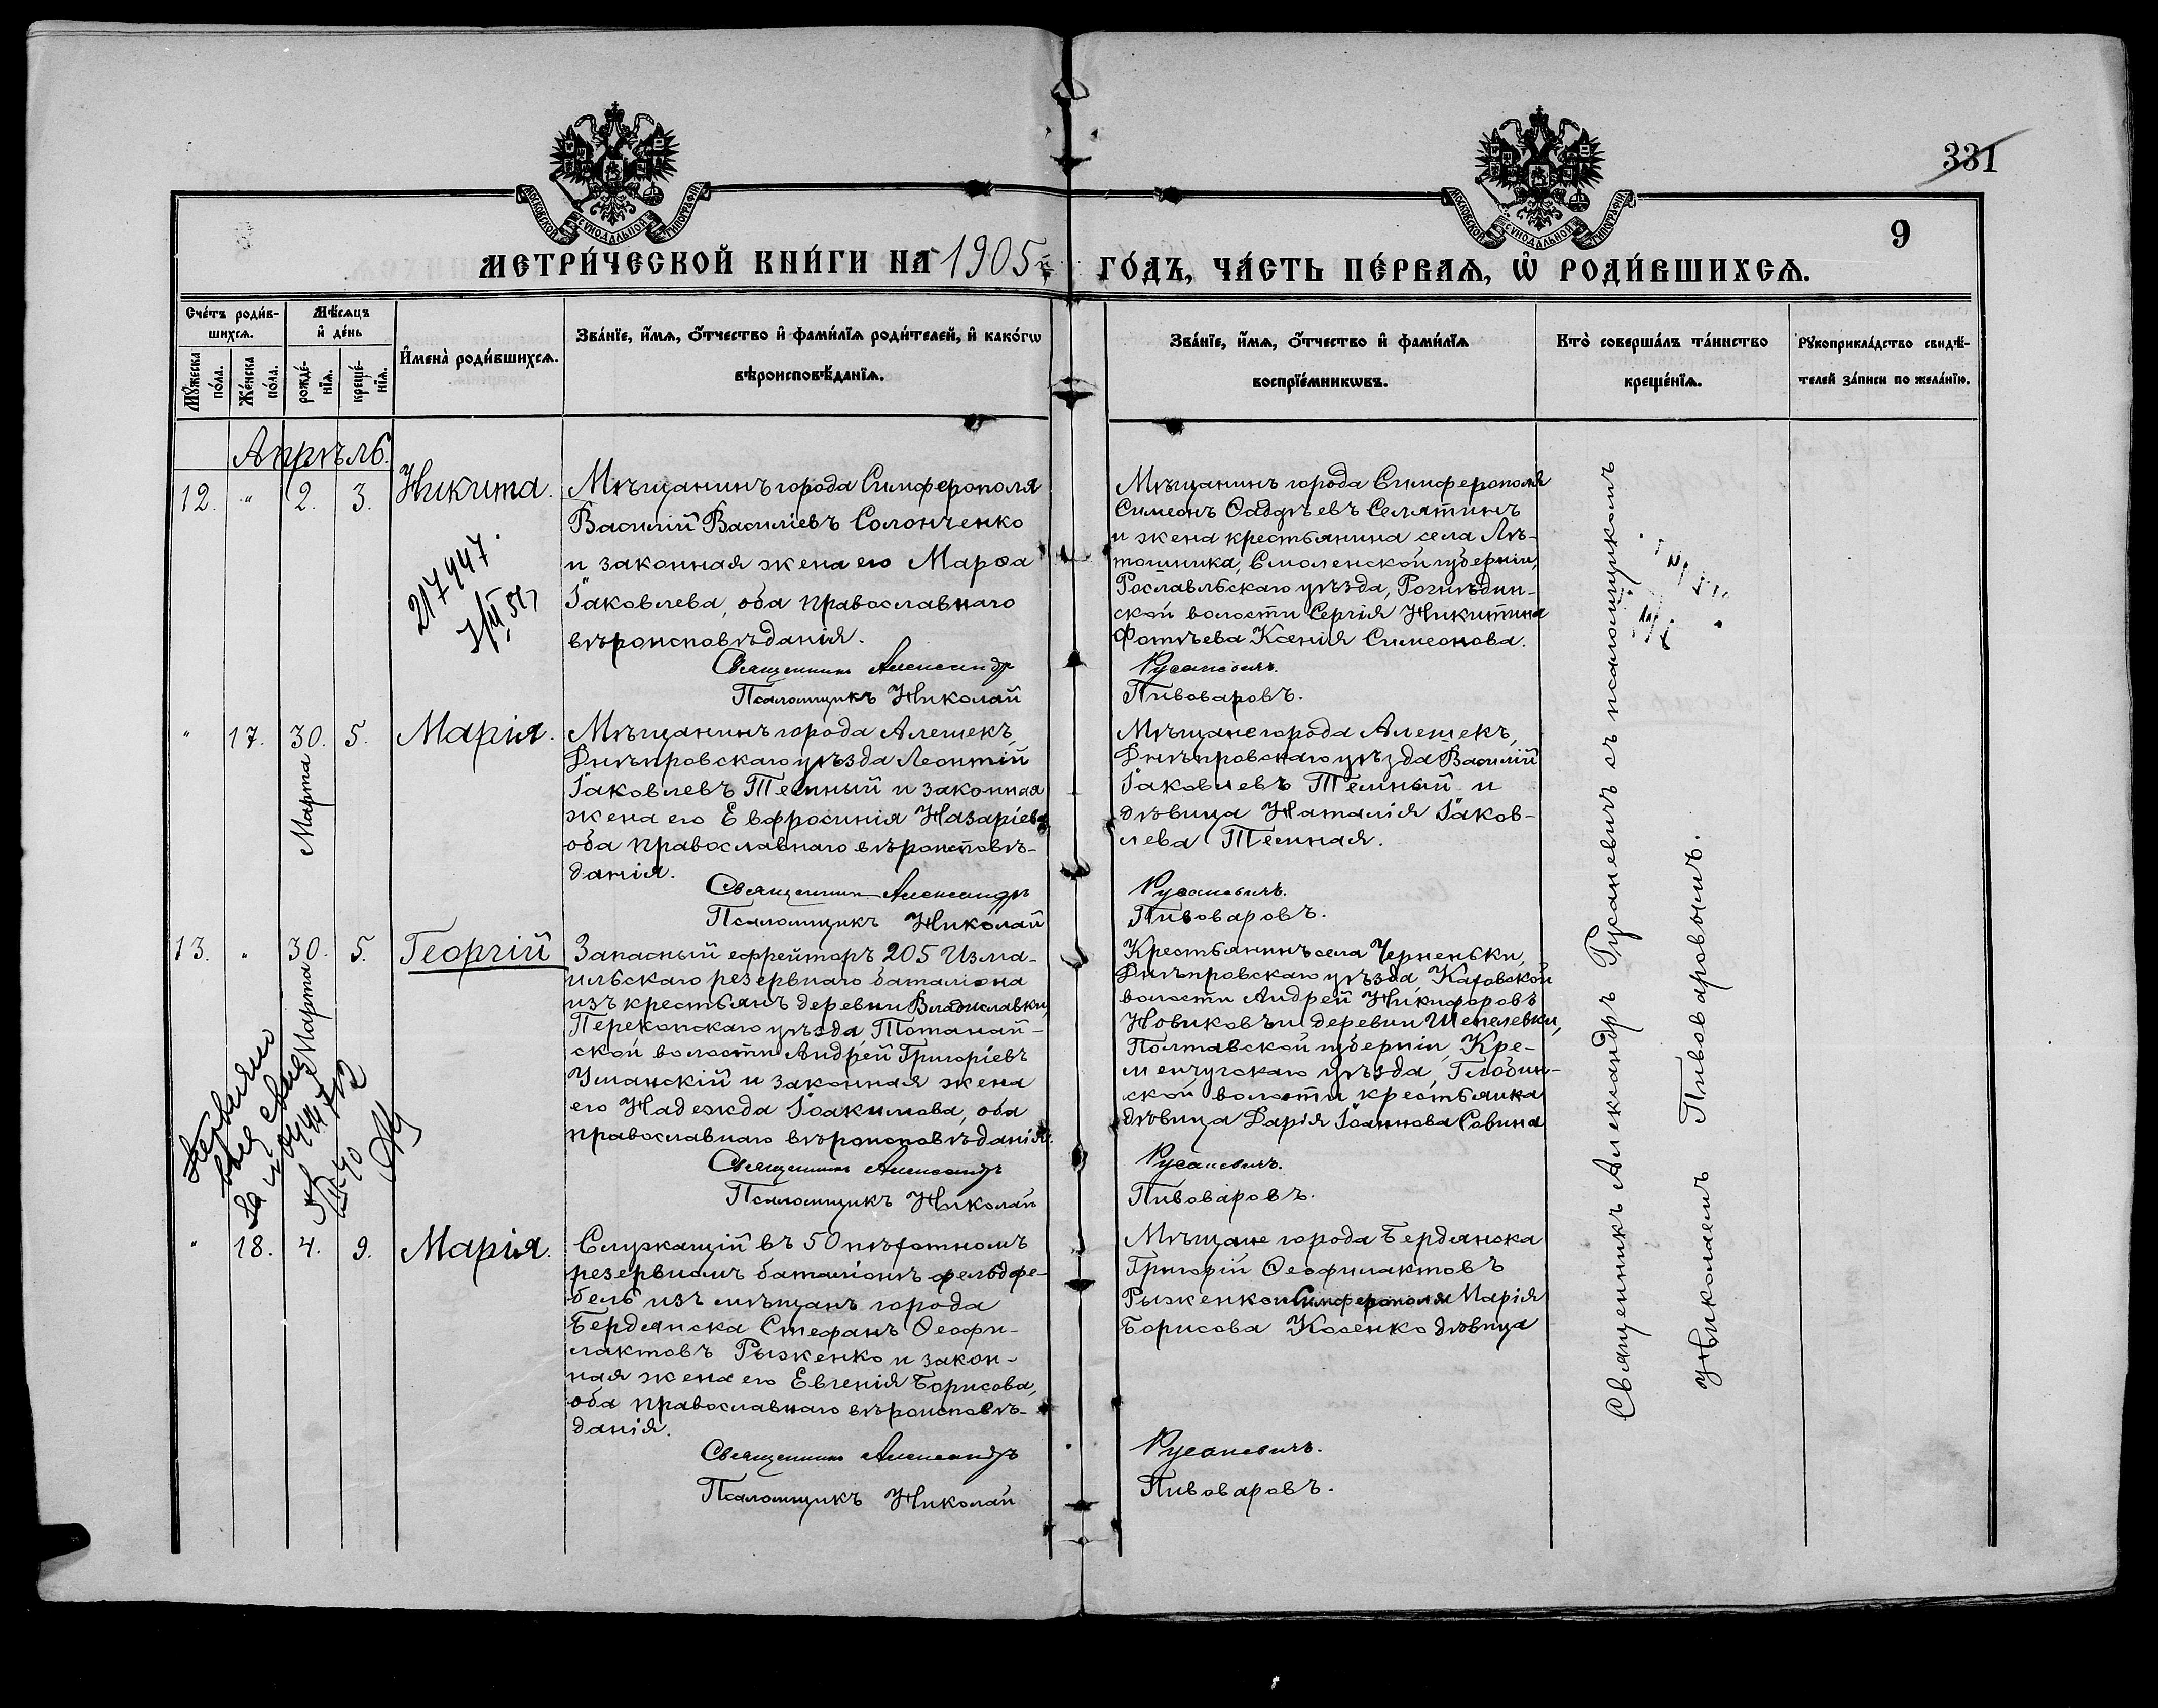 331
9
МОСКОВСКОЙ СѴНОДАЛЬНОЙ ТИПОГРАФІИ
МОСКОВСКОЙ СѴНОДАЛЬНОЙ ТИПОГРАФІИ
МЕТРИ́ЧЕСКОЙ КНИ́ГИ НА 1905 й ГО́ДЪ, ЧА́СТЬ ПЕ́РВАѦ, Ѡ҆ РОДИ́ВШИХСѦ.
Сче́тъ роди́в-
шихсѧ.
Мꙋжеска
по́ла.
Же́нска
по́ла.
Мѣ́сѧцъ
и҆ де́нь
рожде́-
нїѧ.
креще́-
нїѧ.
И҆мена̀ роди́вшихсѧ.
Зва́нїе, и҆́мѧ, ѻ҆́тчество и҆ фами́лїѧ роди́телей, и҆ како́гѡ
вѣроисповѣ́данїѧ.
Зва́нїе, и҆́мѧ, ѻ҆́тчество и҆ фами́лїѧ
воспрїе́мникѡвъ.
Кто̀ соверша́лъ та́инство
креще́нїѧ.
Рꙋкоприкла́дство свидѣ́-
телей за́писи по жела́нїю.
Апрѣль.
12. " 2. 3. Никита.
Мѣщанинъ города Симферополя
Василій Василіевъ Солонченко
и законная жена его Марѳа
Іаковлева, оба православнаго
вѣроисповѣданія.
Священникъ Александръ
Псаломщикъ Николай
Мѣщанинъ города Симферополя
Симеонъ Ѳаддѣевъ Селятинъ
и жена крестьянина села Лѣ-
тошника, Смоленской губерніи,
Рославльскаго уѣзда, Рогнѣдин-
ской волости Сергія Никитина
Фотѣева Ксенія Симеонова.
Русаневичъ.
Пивоваровъ.
217947.
" 17. 30. 5. Марія.
Марта
Мѣщанинъ города Алешекъ,
Днѣпровскаго уѣзда Леонтій
Іаковлевъ Темный и законная
жена его Евфросинія Назаріева,
оба православнаго вѣроисповѣ-
данія.
Священникъ Александръ
Псаломщикъ Николай
Мѣщане города Алешекъ,
Днѣпровскаго уѣзда Василій
Іаковлевъ Темный и
дѣвица Наталія Іаков-
лева Темная.
Русаневичъ.
Пивоваровъ.
13. " 30. 5. Георгій
Марта
Запасный ефрейторъ 205 Изма-
ильскаго резервнаго баталіона
изъ крестьянъ деревни Владиславки,
Перекопскаго уѣзда, Тотанай-
ской волости Андрей Григоріевъ
Уманскій и законная жена
его Надежда Іоакимова, оба
православнаго вѣроисповѣданія.
Священникъ Александръ
Псаломщикъ Николай
Крестьянинъ села Черненьки,
Днѣпровскаго уѣзда, Каховской
волости Андрей Никифоровъ
Новиковъ и деревни Шепелевки,
Полтавской губерніи, Кре-
менчугскаго уѣзда, Глобин-
ской волости крестьянка
дѣвица Дарія Іоаннова Савина
Русаневичъ.
Пивоваровъ.
" 18. 4. 9. Марія.
Служащій въ 50 пѣхотномъ
резервномъ баталіонѣ фельдфе-
бель изъ мѣщанъ города
Бердянска Стефанъ Ѳеофи-
лактовъ Рыженко и закон-
ная жена его Евгенія Борисова,
оба православнаго вѣроисповѣ-
данія.
Священникъ Александръ
Псаломщикъ Николай
Мѣщане города Бердянска
Григорій Ѳеофилактовъ
Рыженко и Симферополя Марія
Борисова Косенко дѣвица
Русаневичъ.
Пивоваровъ.
Священникъ Александръ Русаневичъ съ псаломщикомъ
Николаемъ Пивоваровымъ.